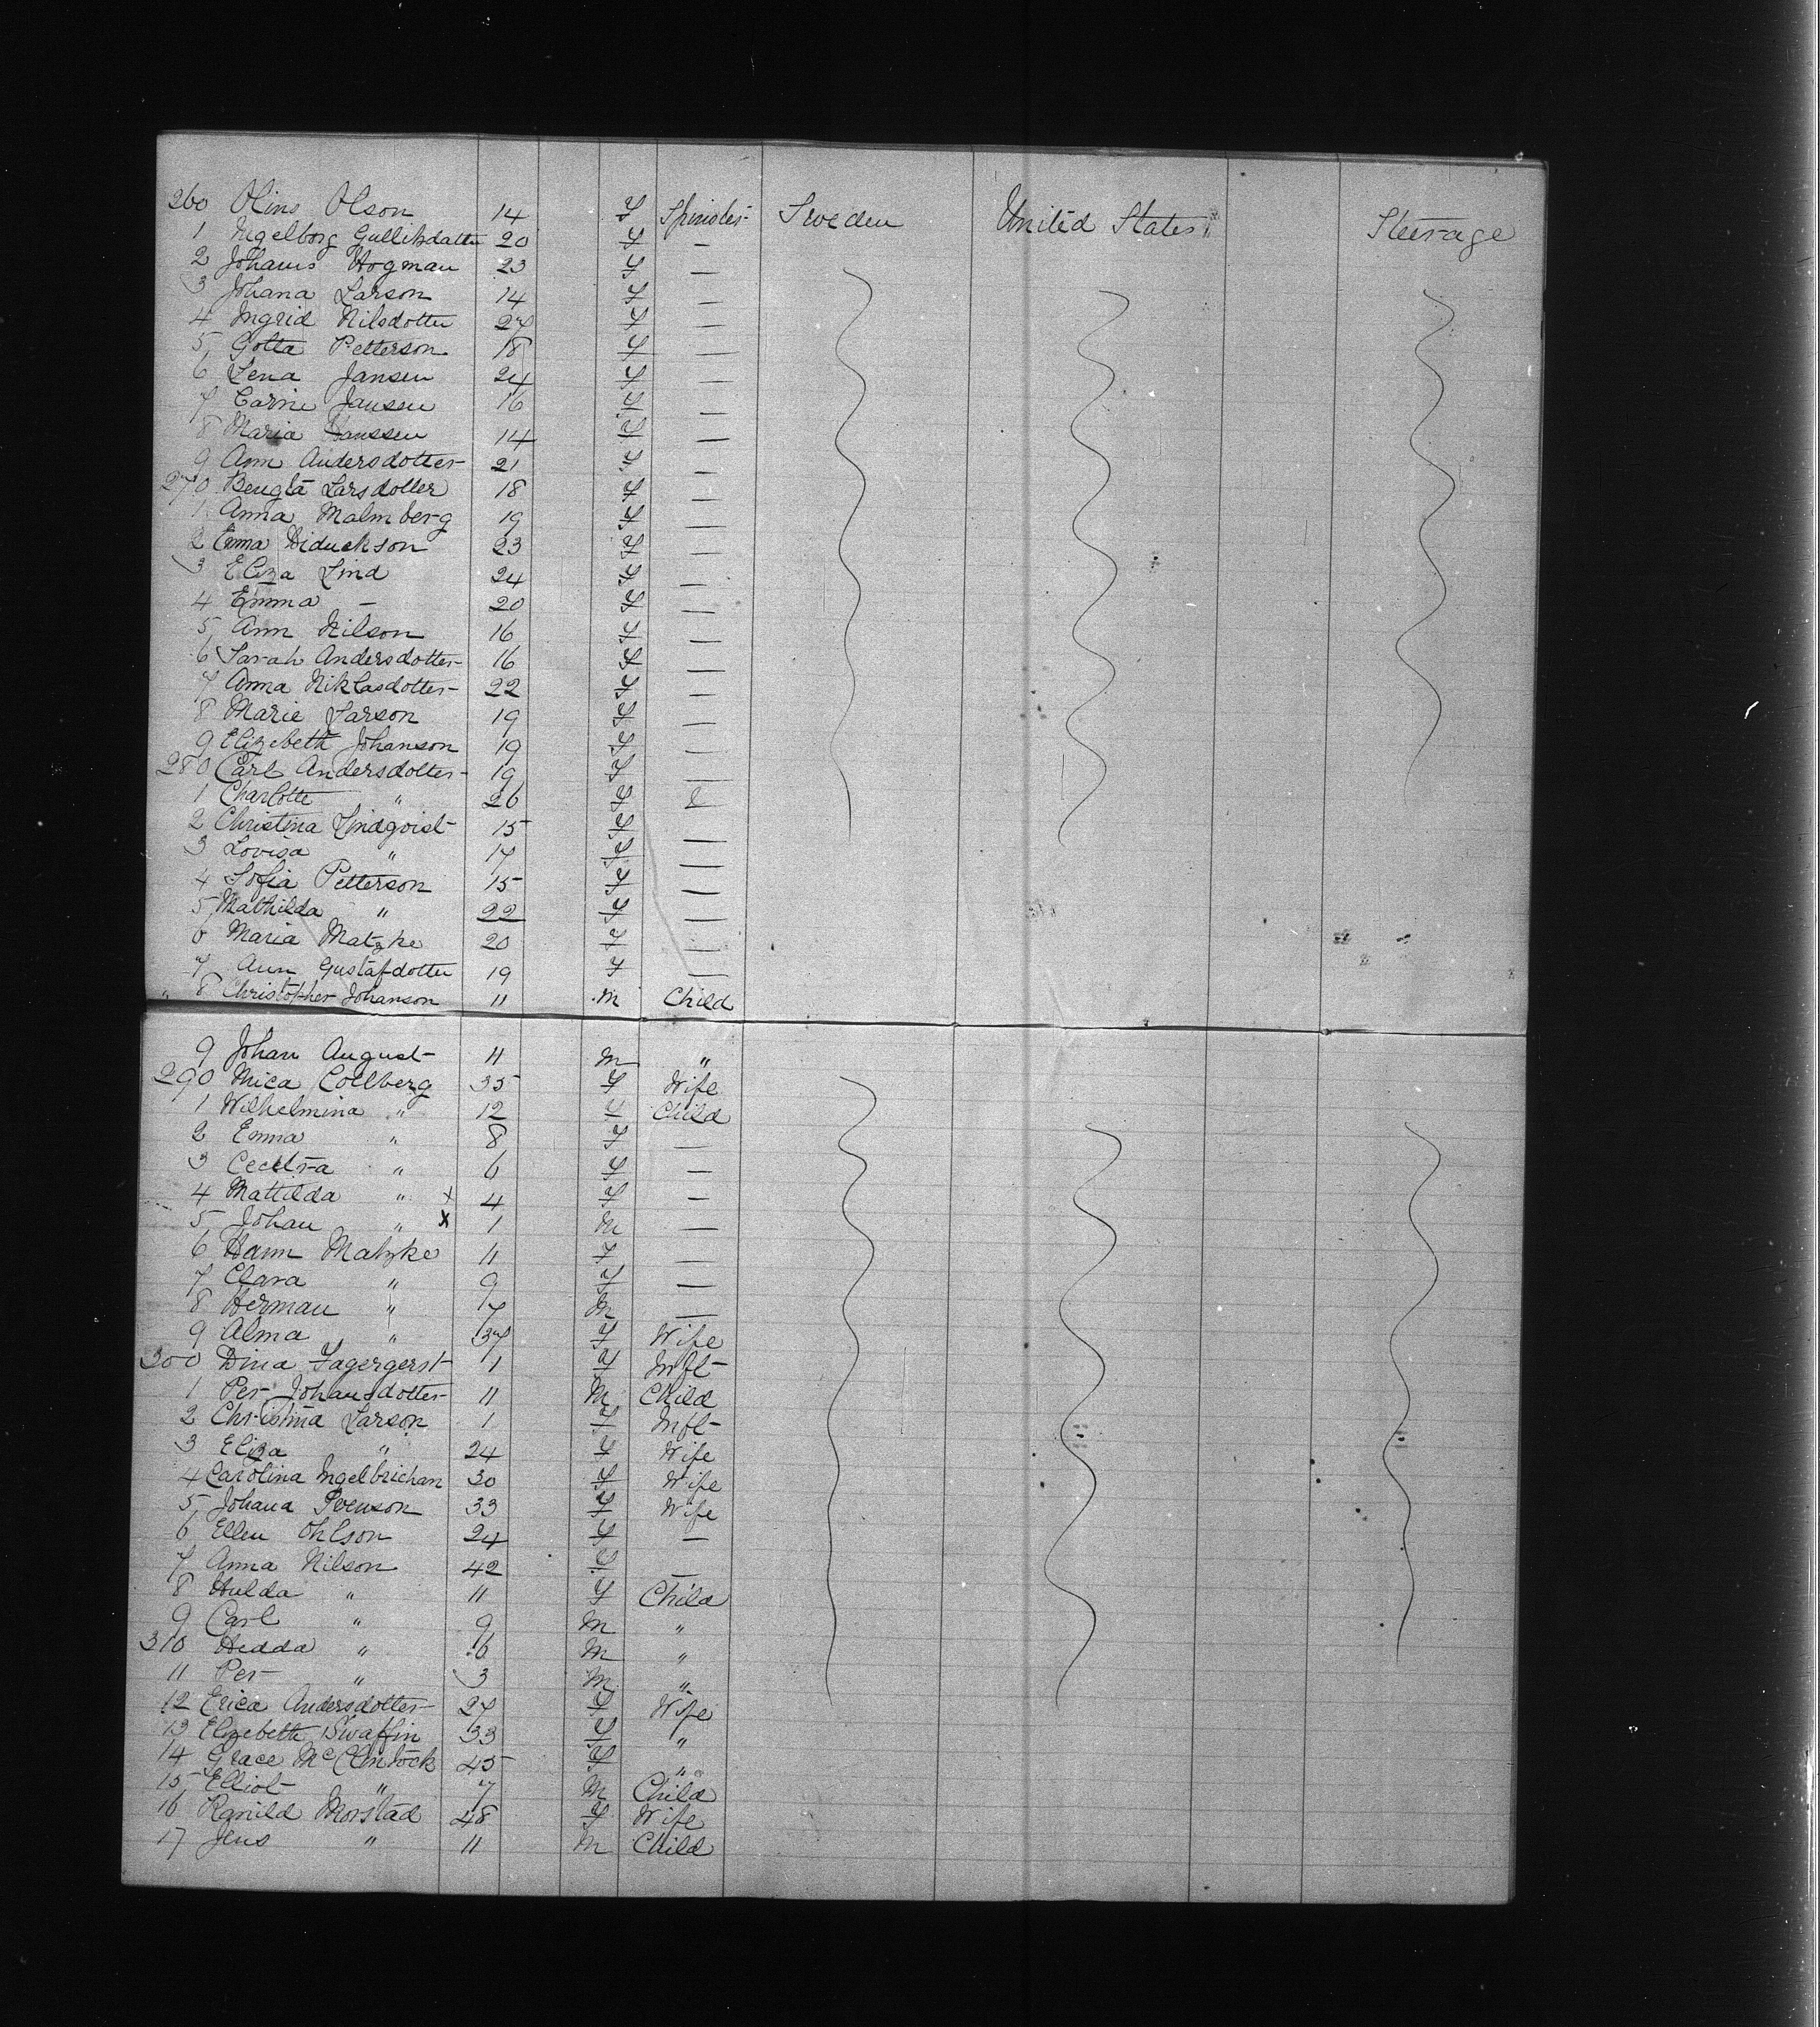 260 Olins Olson 14 F Spinster Sweden United States Steerage
1 Ingelborg Gulliksdatter 20 F —
2 Johans Hogman 23 F —
3 Johana Larson 14 F —
4 Ingrid Nilsdotter 27 F —
5 Gotta Petterson 18 F —
6 Lena Jansen 24 F —
7 Carin Jansen 16 F —
8 Maria Hanssen 14 F —
9 Ann Andersdotter 21 F —
270 Bengta Larsdotter 18 F —
1 Anna Malmberg 19 F —
2 Emma Diduckson 23 F —
3 Eliza Lind 24 F —
4 Emma — 20 F —
5 Ann Nilson 16 F —
6 Sarah Andersdotter 16 F —
7 Anna Niklasdotter 22 F —
8 Marie Larson 19 F —
9 Elizebeth Johanson 19 F —
280 Carl Andersdotter 19 F —
1 Charlotte " 26 F
2 Christina Lindqvist 15 F —
3 Lovisa " 17 F —
4 Sofia Petterson 15 F —
5 Mathilda " 22 F —
6 Maria Matzke 20 F —
7 Ann Gustafdotter 19 F —
" 8 Christopher Johanson 11 M Child
9 Johan August 11 M "
290 Mica Collberg 35 F Wife
1 Wilhelmina " 12 F Child
2 Emma " 8 F —
3 " 6 F —
4 Mattilda " x 4 F —
5 Johan " x 1 M —
6 Hann Matzke 11 F —
7 Clara " 9 F —
8 Herman " 7 M —
9 Alma " 37 F Wife
300 Dina Fagergerst 1 F Inft
1 Per Johansdotter 11 M Child
2 Christina Larson 1 F Inft
3 Eliza " 24 F Wife
4 Carolina Ingelbrichan 30 F Wife
5 Johana Svenson 33 F Wife
6 Ellen Ohlson 24 F —
7 Anna Nilson 42 F —
8 Hulda " 11 F Child
9 Carl " 9 M "
310 Hedda " 6 M "
11 Per " 3 M "
12 Erica Andersdotter 27 F Wife
13 Elizebeth Swaffin 33 F "
14 Grace McClintock 45 F "
15 Elliot " 7 M Child
16 Ranild Morstad 48 F Wife
17 Jens " 11 M Child